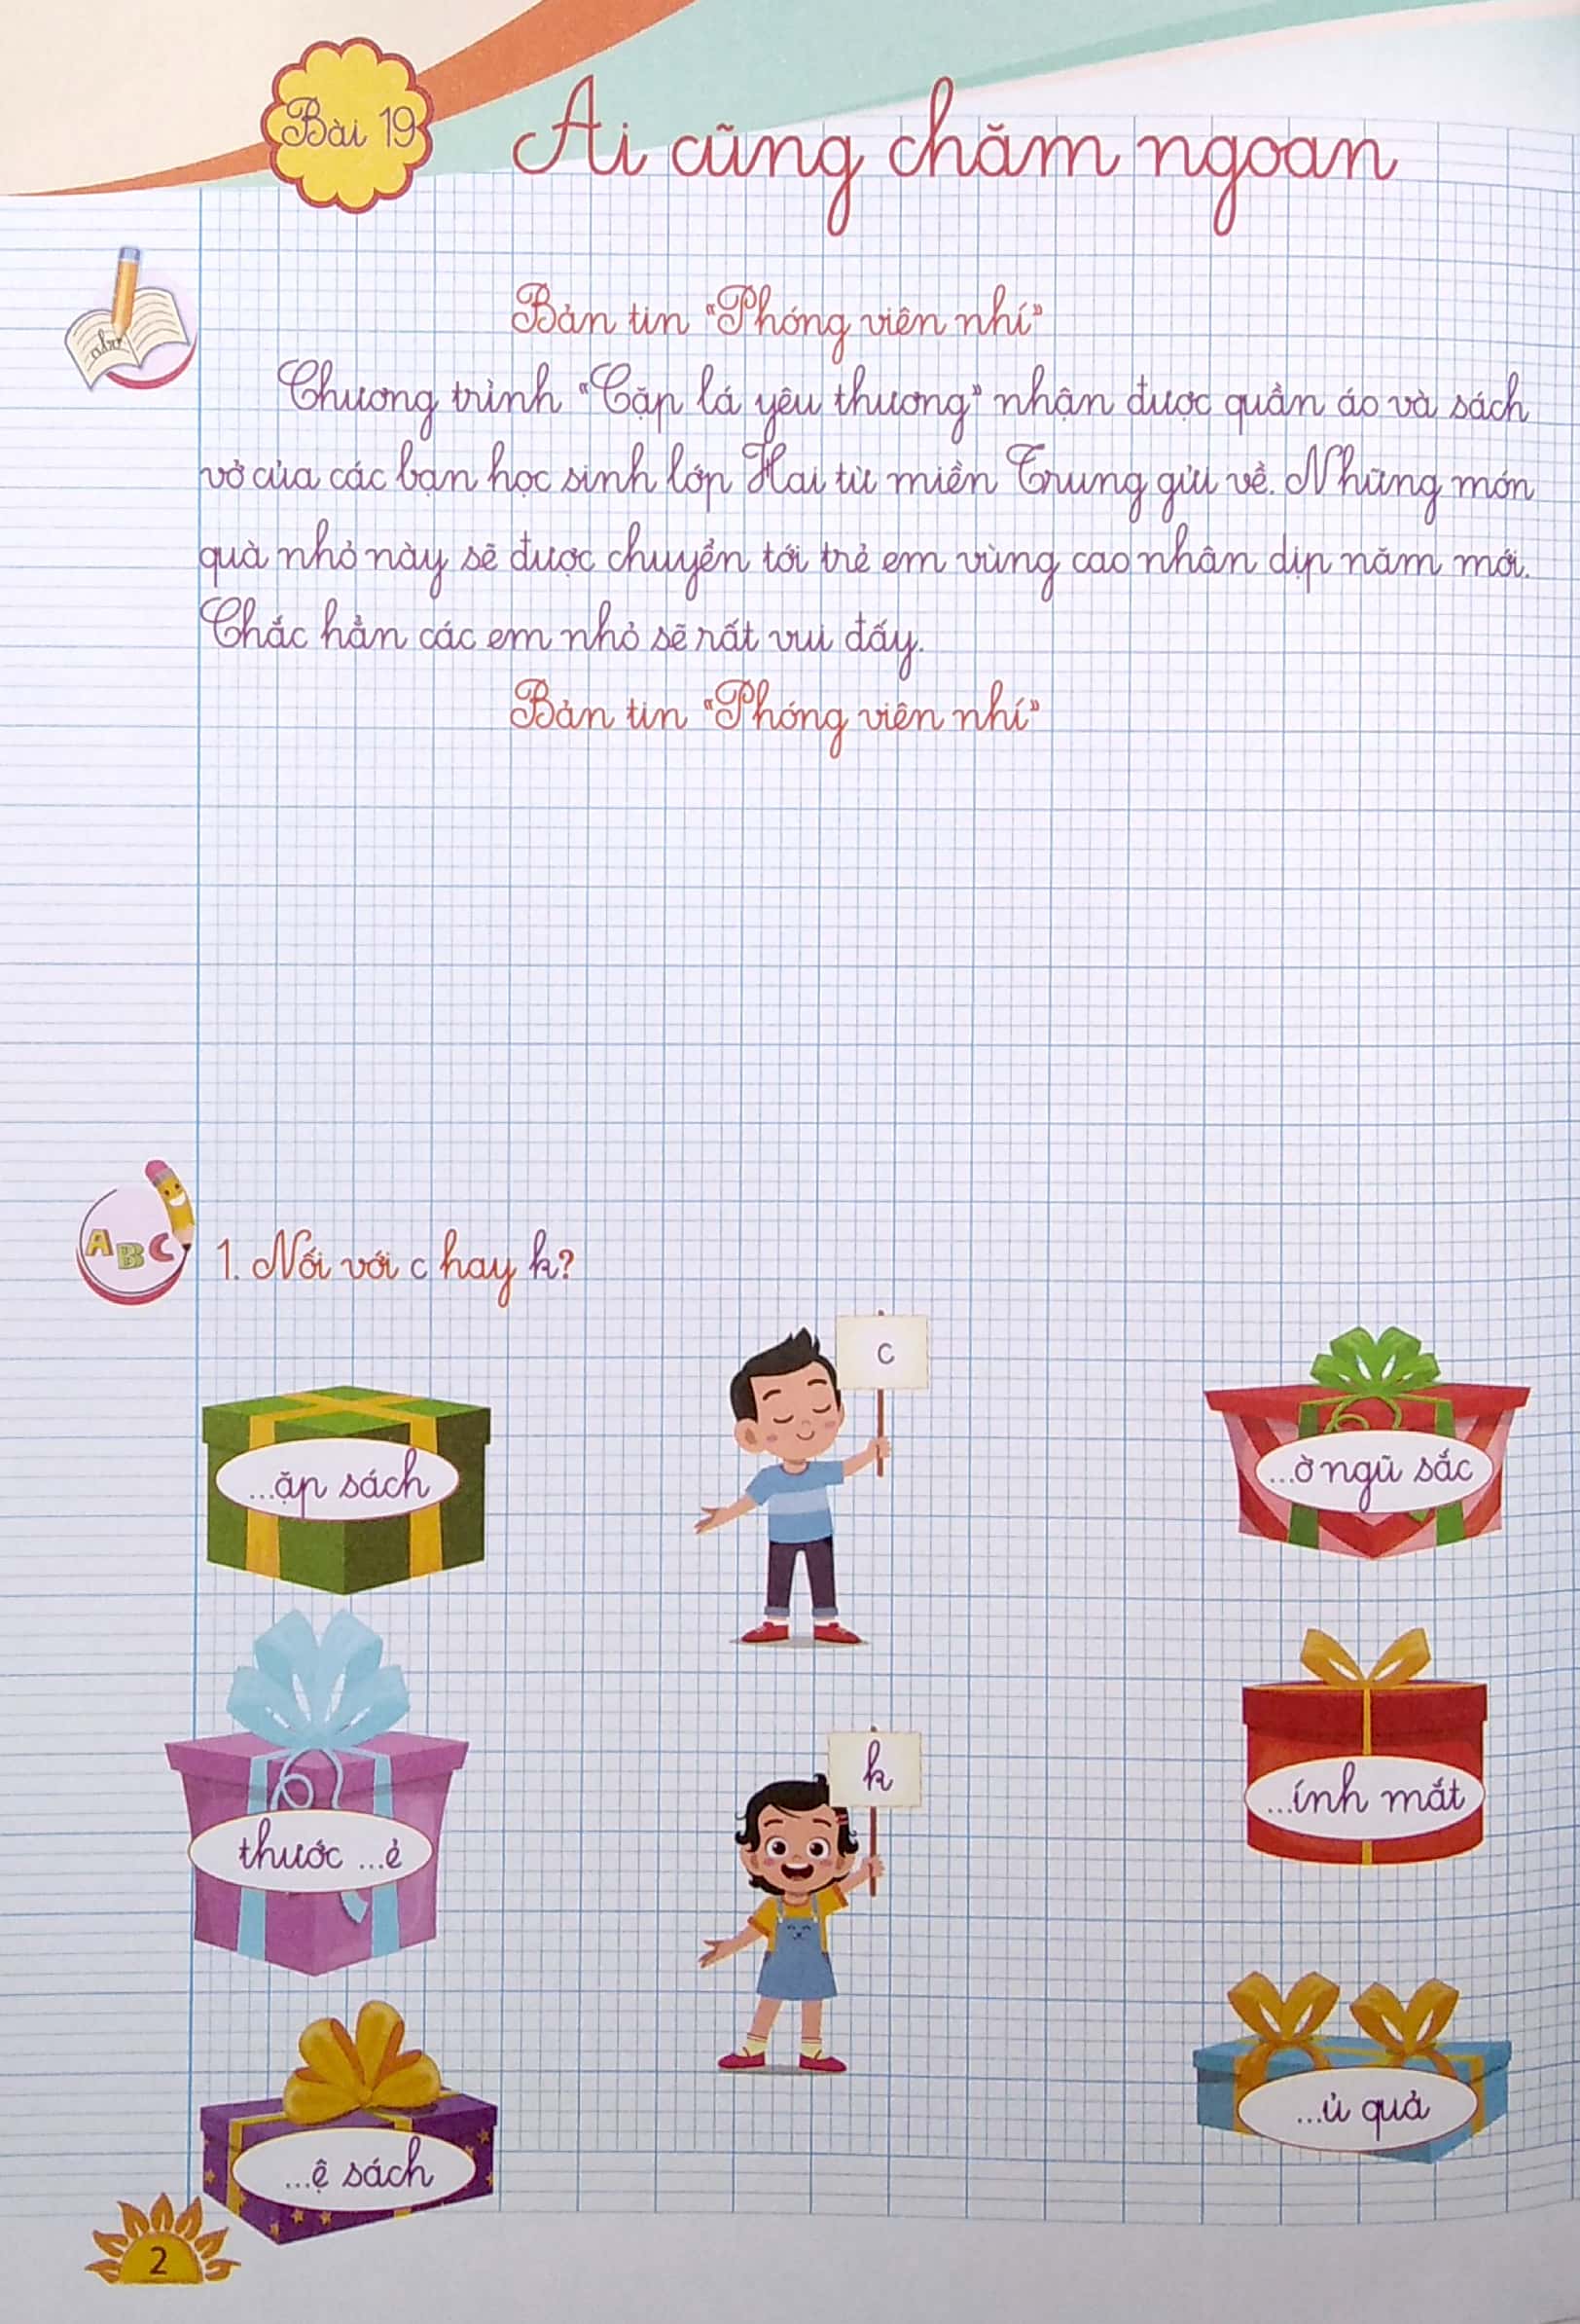 Bài 19
Ai cũng chăm ngoan
Bản tin "Phóng viên nhí"
Chương trình "Cặp lá yêu thương" nhận được quần áo và sách
vở của các bạn học sinh lớp Hai từ miền Trung gửi về. Những món
quà nhỏ này sẽ được chuyển tới trẻ em vùng cao nhân dịp năm mới.
Chắc hẳn các em nhỏ sẽ rất vui đấy.
Bản tin "Phóng viên nhí"
ABC
1. Nối với c hay k?
c
...ặp sách
...ờ ngũ sắc
k
thước ...ẻ
...ính mắt
...ệ sách
...ủ quả
2